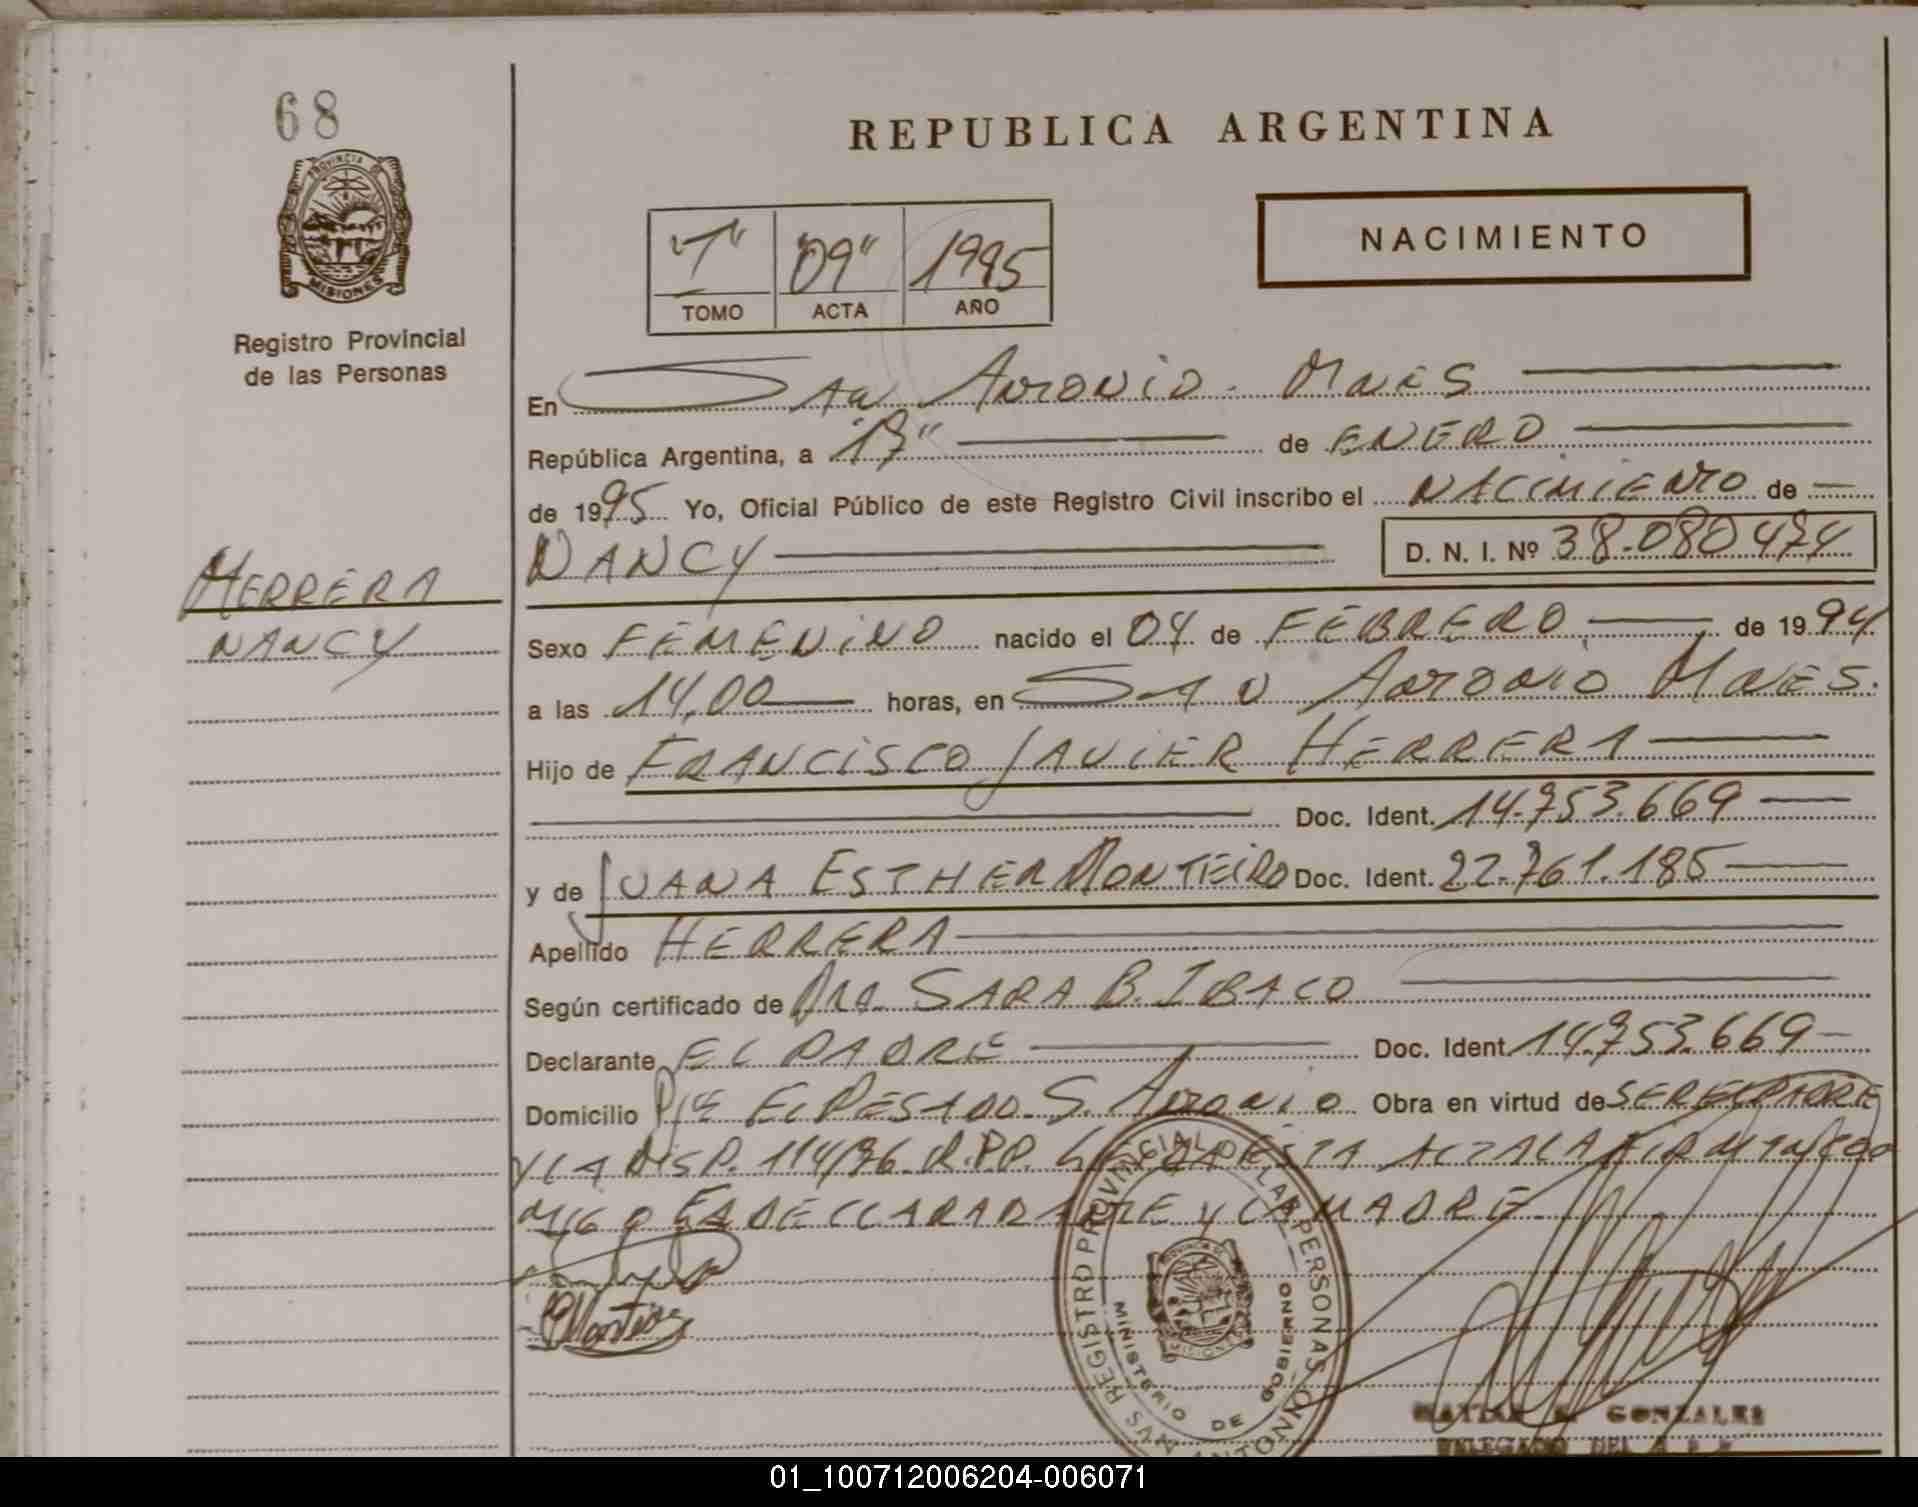 68
REPUBLICA ARGENTINA
PROVINCIA DE MISIONES
Registro Provincial
de las Personas
"I" "09" 1995
TOMO ACTA AÑO
NACIMIENTO
En San Antonio - Mnes
República Argentina, a "17" de ENERO
de 1995 Yo, Oficial Público de este Registro Civil inscribo el NACIMIENTO de
NANCY D. N. I. Nº 38.080474
HERRERA
NANCY
Sexo FEMENINO nacido el 04 de FEBRERO de 1994
a las 14,00 horas, en SAN Antonio Mnes.
Hijo de FRANCISCO JAVIER HERRERA
Doc. Ident. 14.753.669
y de JUANA ESTHER MONTEIRO Doc. Ident. 22.761.185
Apellido HERRERA
Según certificado de Dra. SARA B.
Declarante EL PADRE Doc. Ident 14.753.669
Domicilio S. Antonio Obra en virtud de SER EL PADRE
Y LA DISP. R.P.P. ESTA ACTA LA FIRMAN CON
MIGO EL DECLARANTE Y LA MADRE
REGISTRO PROVINCIAL DE LAS PERSONAS
MINISTERIO DE GOBIERNO
PROVINCIA DE MISIONES
SAN ANTONIO
GONZALES
DELEGADO DEL
01_100712006204-006071